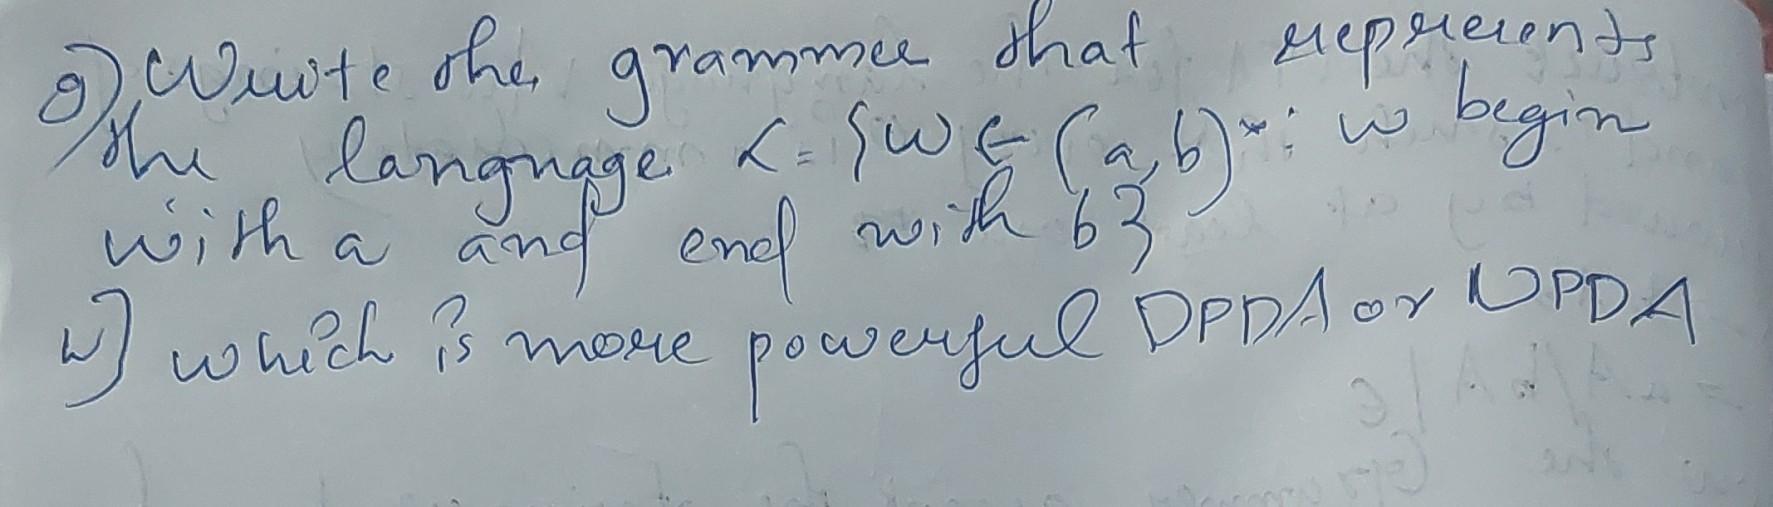 g) Write the grammer that represents
the language L = {w ∈ (a,b)*: w begin
with a and end with b}
h) which is more powerful DPDA or NPDA